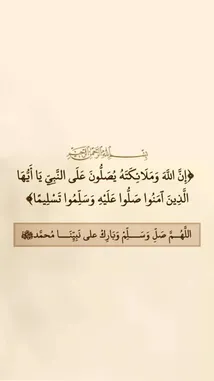 بسم الله الرحمن الرحيم
﴿إِنَّ اللَّهَ وَمَلَائِكَتَهُ يُصَلُّونَ عَلَى النَّبِيِّ يَا أَيُّهَا
الَّذِينَ آمَنُوا صَلُّوا عَلَيْهِ وَسَلِّمُوا تَسْلِيمًا﴾
اللَّهُمَّ صَلِّ وَسَلِّمْ وَبَارِكْ على نَبِيِّنَا مُحمَّد ﷺ